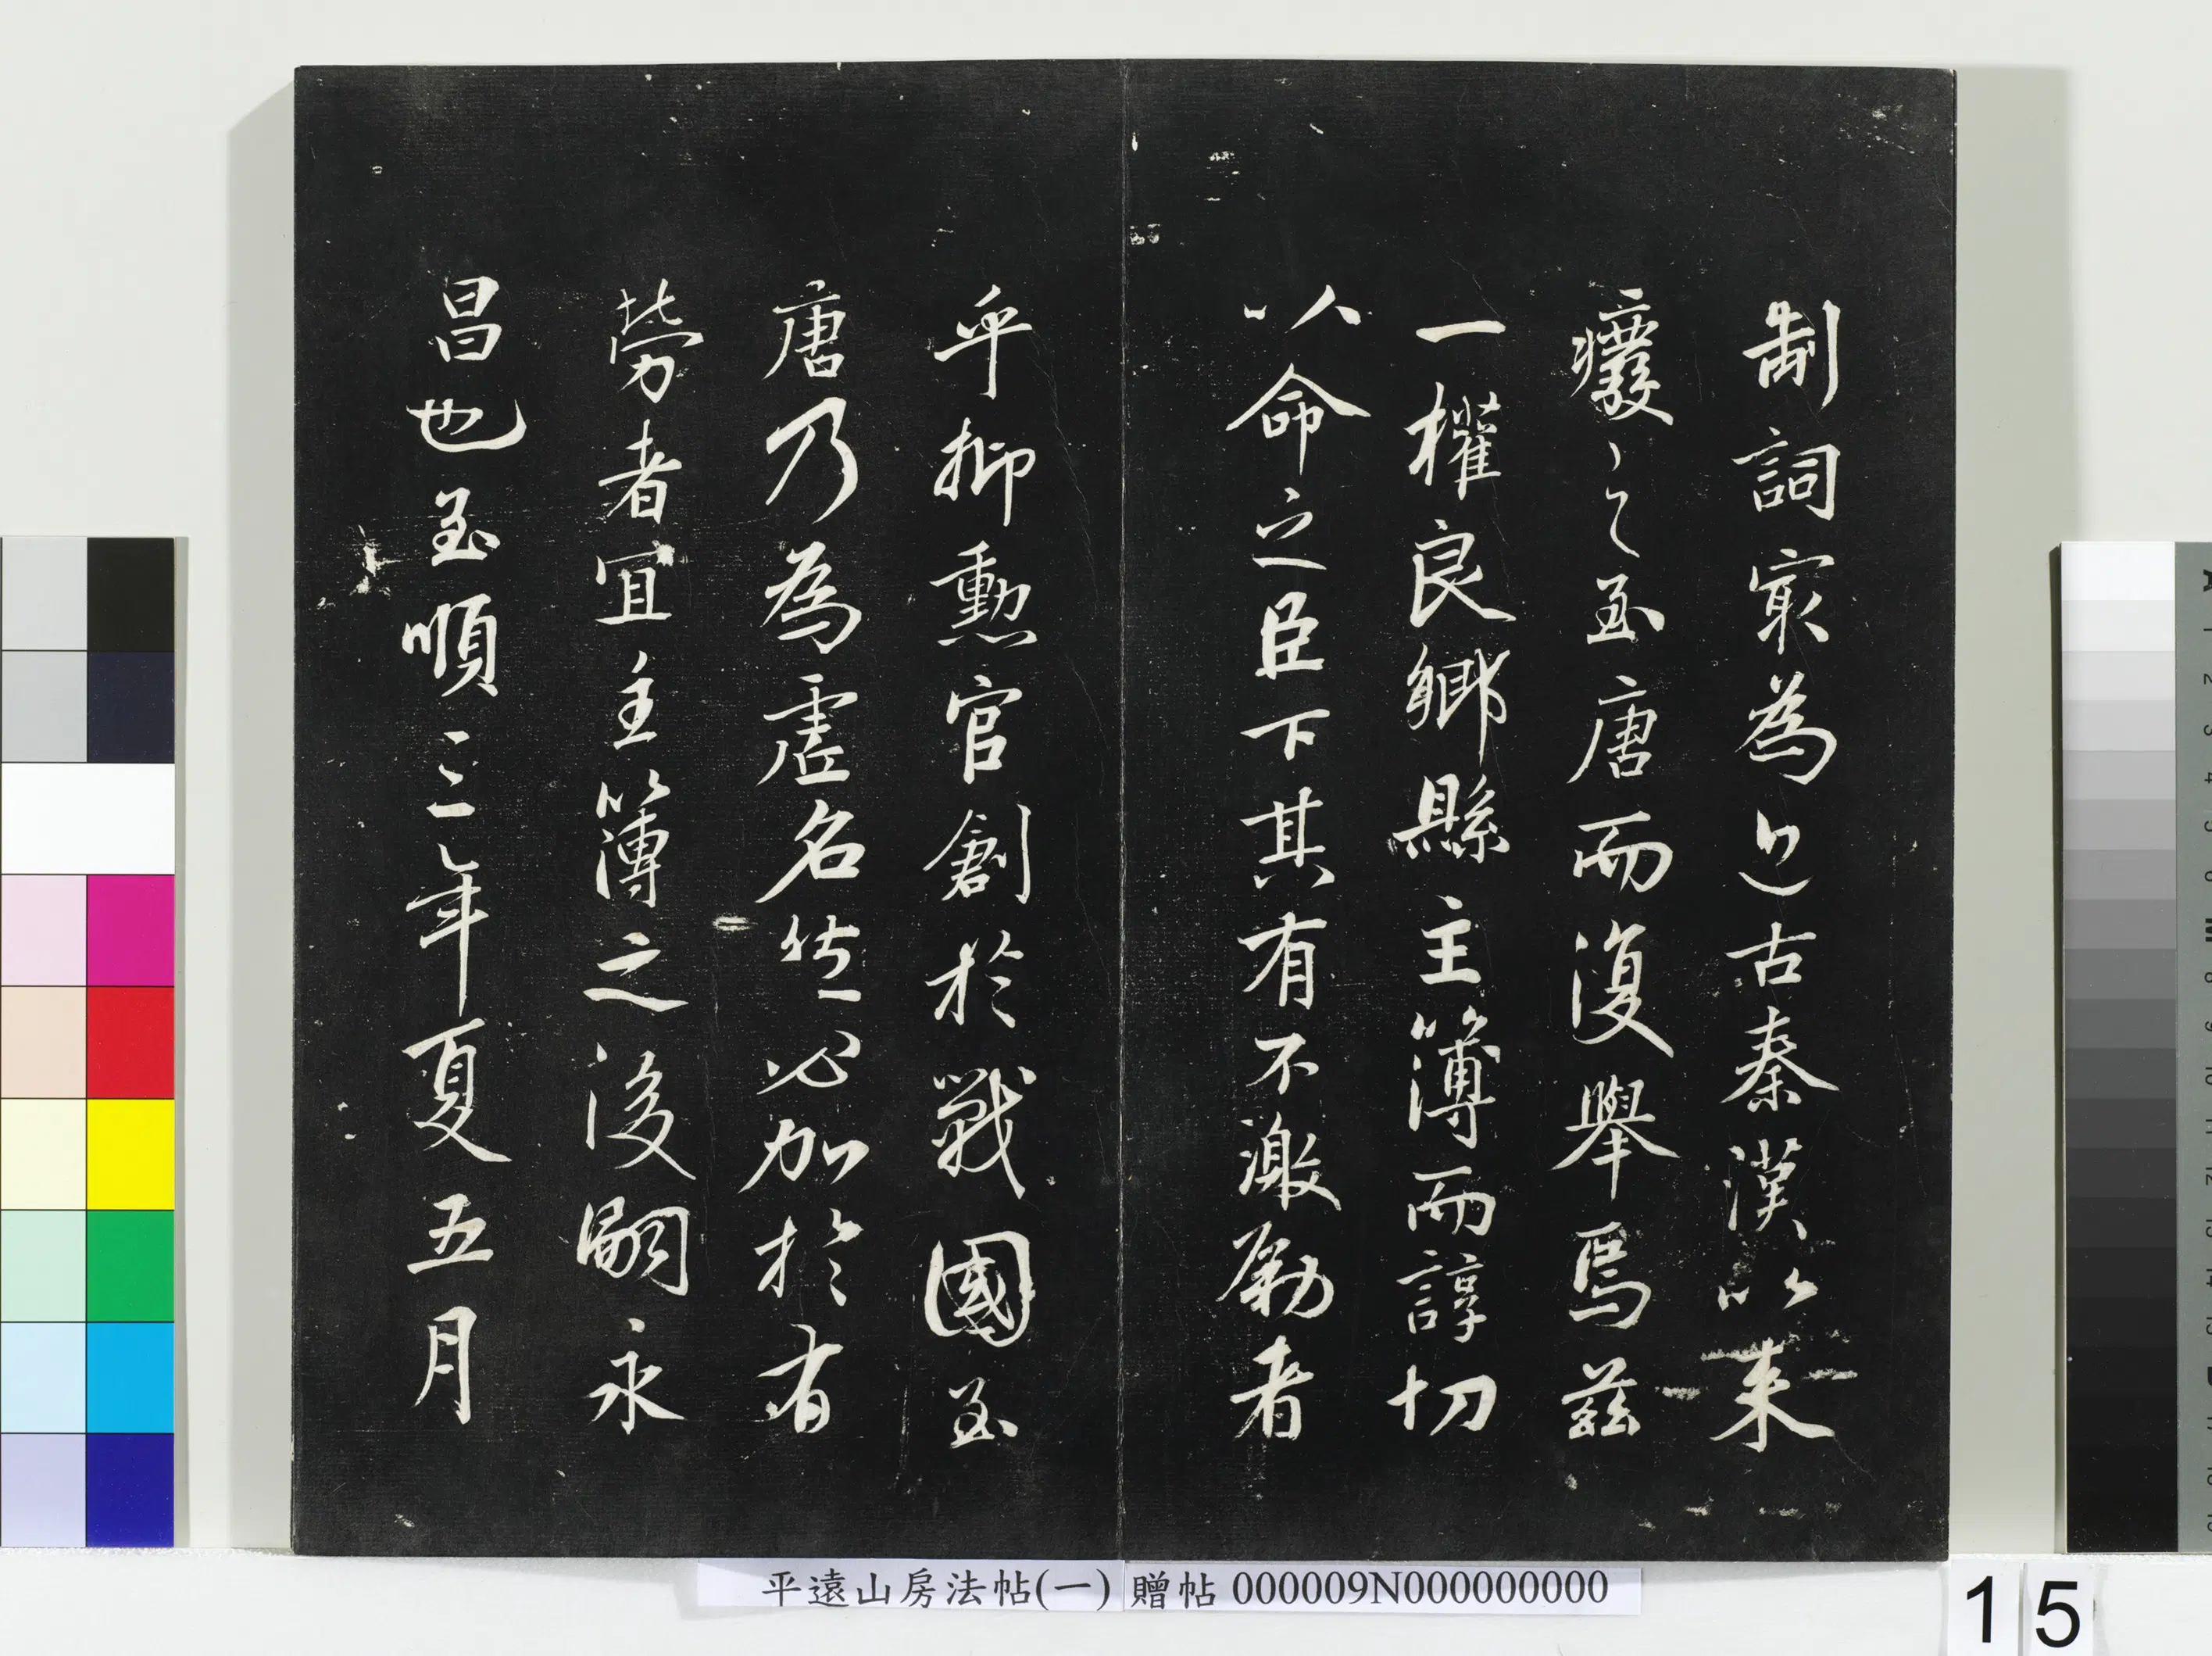 制詞㝡為近古秦漢以来
癈之至唐而復舉焉兹
一權良鄉縣主簿而諄切
以命之臣下其有不激勵者
乎抑勳官創於戰國至
唐乃為虛名然必加於有
勞者宜主簿之後嗣永
昌也至順三年夏五月
平遠山房法帖(一) 贈帖 000009N000000000
15